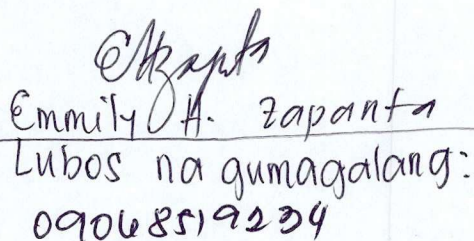 Emmily A. Zapanta
Lubos na gumagalang:
09068519234